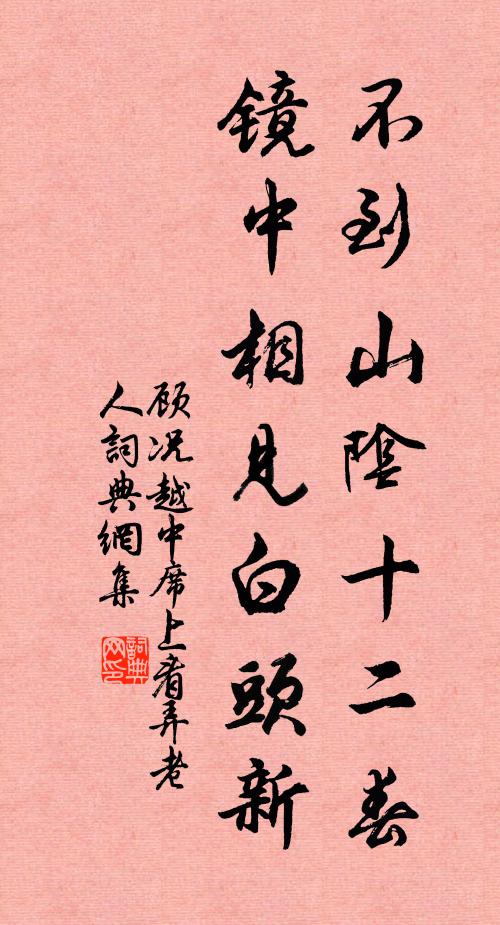 不到山陰十二春
鏡中相見白頭新
顾况越中席上看弄老
人詞典網集
詞典
网印